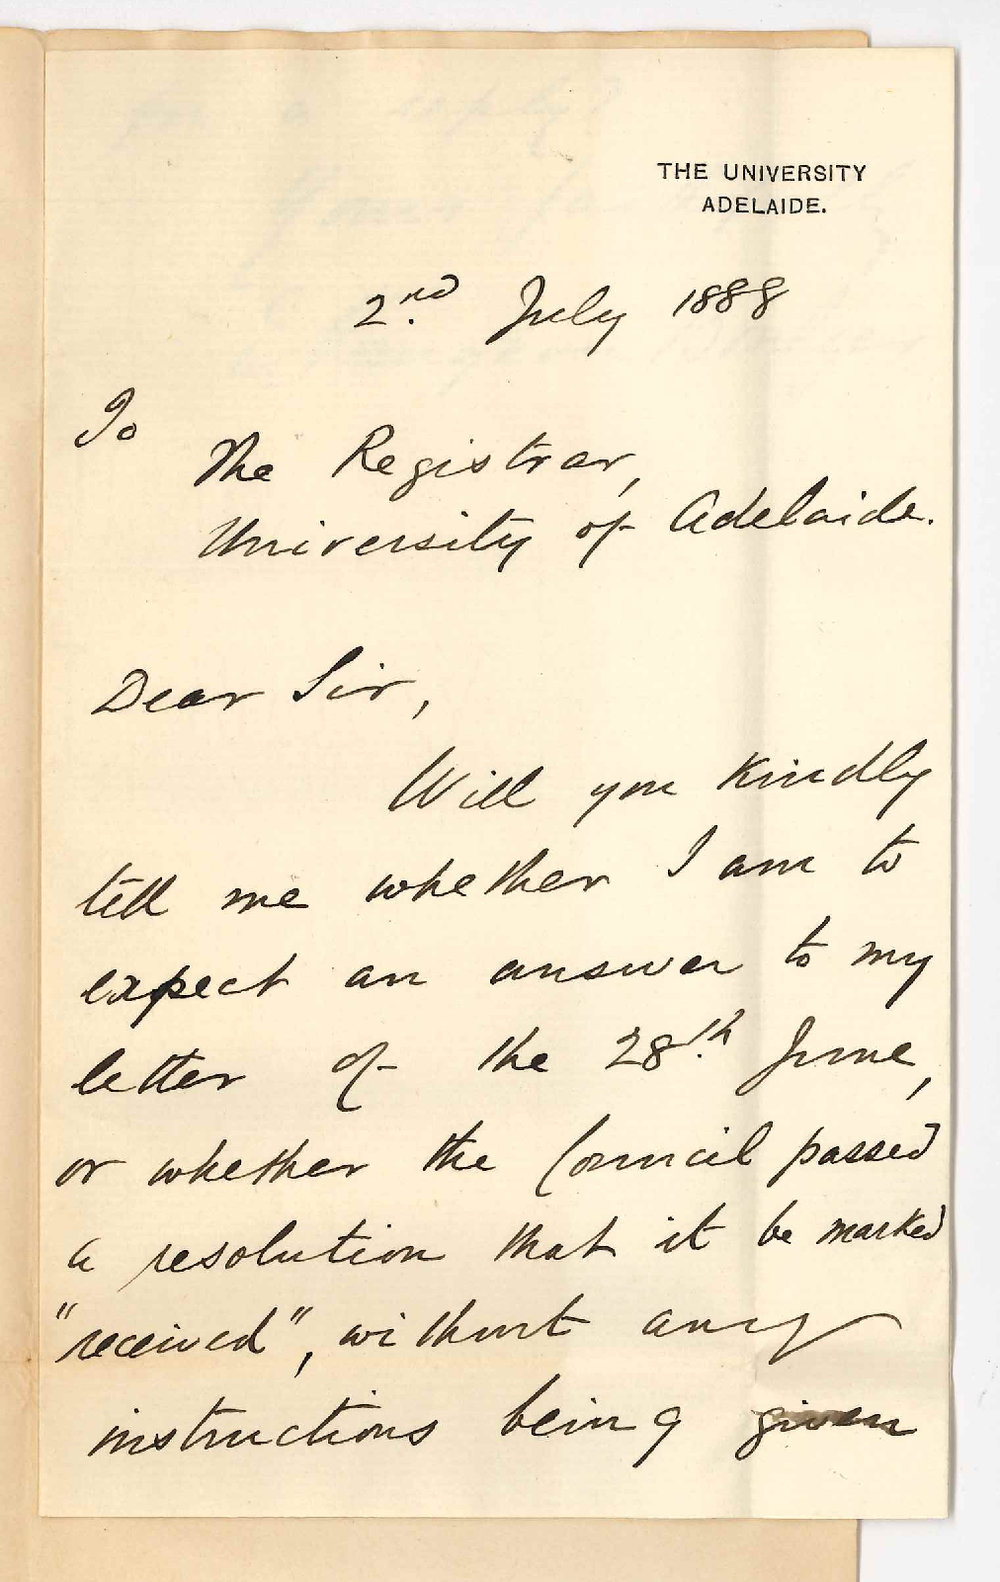 THE UNIVERSITY
ADELAIDE.
2nd. July 1888
To
The Registrar,
University of Adelaide.
Dear Sir,
Will you kindly
tell me whether I am to
expect an answer to my
letter of the 28th. June,
or whether the Council passed
a resolution that it be marked
"received", without any
instructions being given